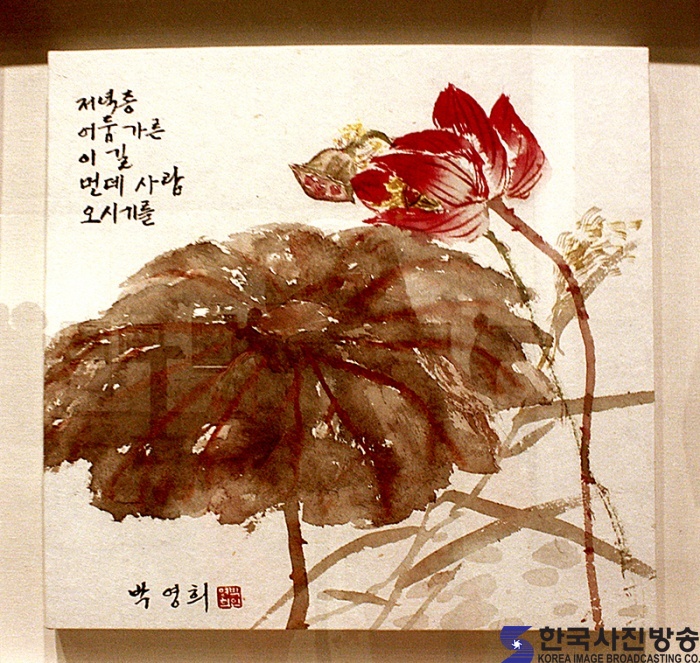 저녁층
어둠 가른
이 길
먼데 사람
오시기를
박 영희
한국사진방송
KOREA IMAGE BROADCASTING CO.